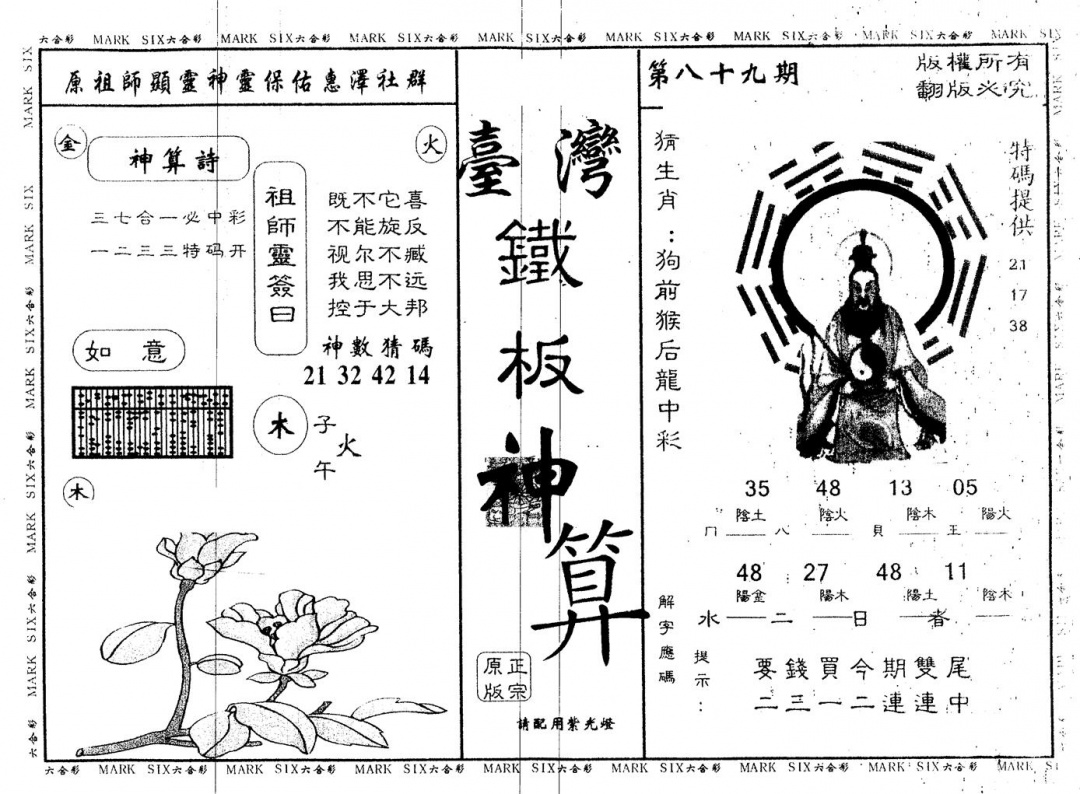 六合彩 MARK SIX六合彩 MARK SIX六合彩 MARK SIX六合彩 MARK SIX六合彩 MARK SIX六合彩 MARK SIX六合彩 MARK SIX六合彩 MARK SIX
原祖師顯靈神靈保佑惠澤社群
金
神算詩
火
三七合一必中彩
一二三三特码开
祖師靈簽曰
既不它喜
不能旋反
视尔不臧
我思不远
控于大邦
神數猜碼
21 32 42 14
如意
木
子
火
午
木
臺灣
鐵
板
神
算
正宗
原版
請配用紫光燈
第八十九期
版權所有
翻版必究
猜生肖：狗前猴后龍中彩
特碼提供
21
17
38
35 48 13 05
陰土 陰火 陰木 陽火
八 貝 王
48 27 48 11
陽金 陽木 陽土 陰木
水 二 日 者
解字應碼
提示：
要錢買今期雙尾
二三一二連連中
六合彩 MARK SIX六合彩 MARK SIX六合彩 MARK SIX六合彩 MARK SIX六合彩 MARK SIX六合彩 MARK SIX六合彩 MARK SIX六合彩 MARK